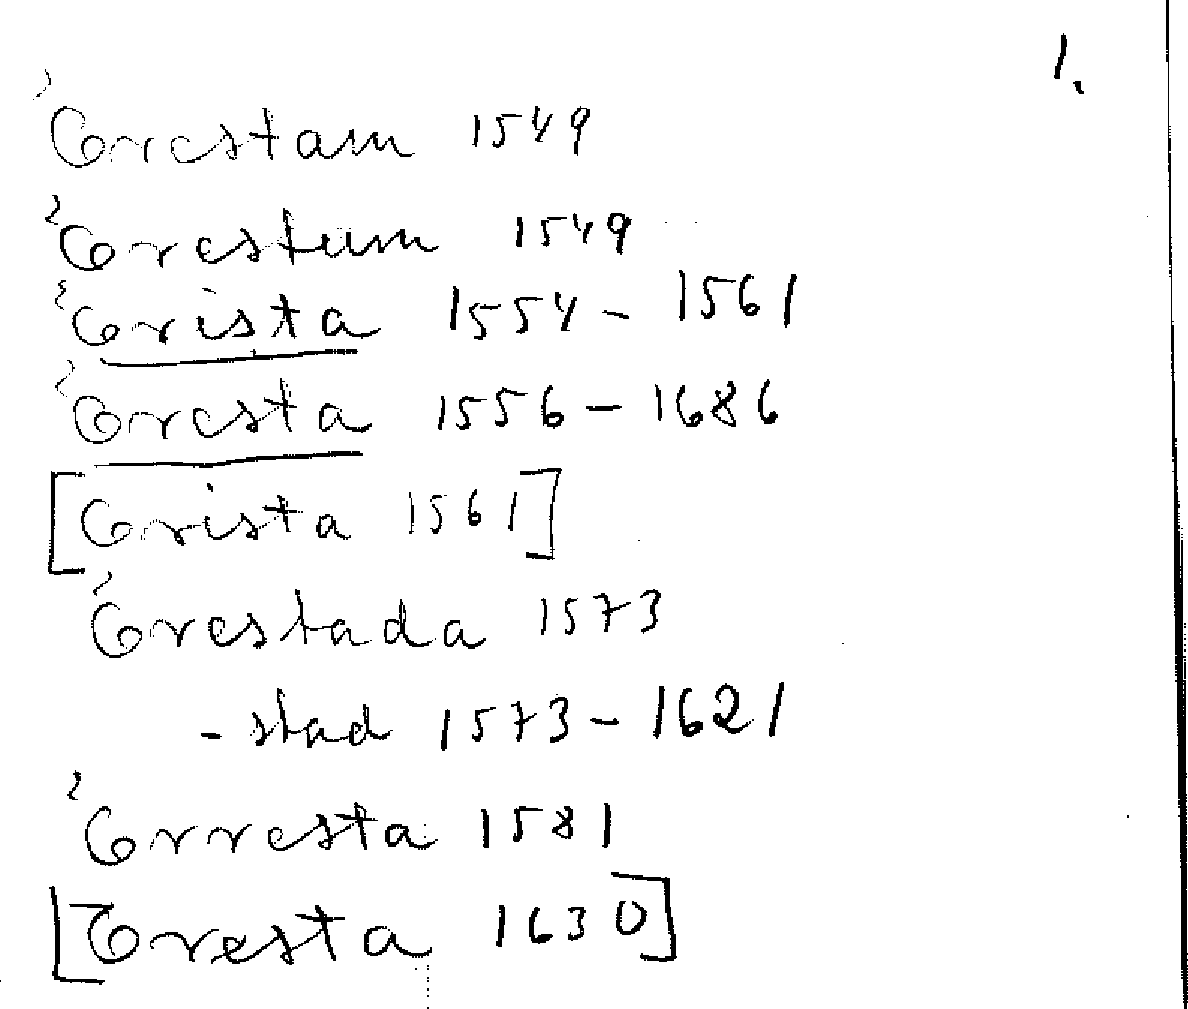 1.
Torestam 1549
Torestum 1549
Torista 1554 - 1561
Toresta 1556 - 1686
[Torista 1561]
Torestada 1573
- stad 1573 - 1621
Torresta 1581
[Toresta 1630]